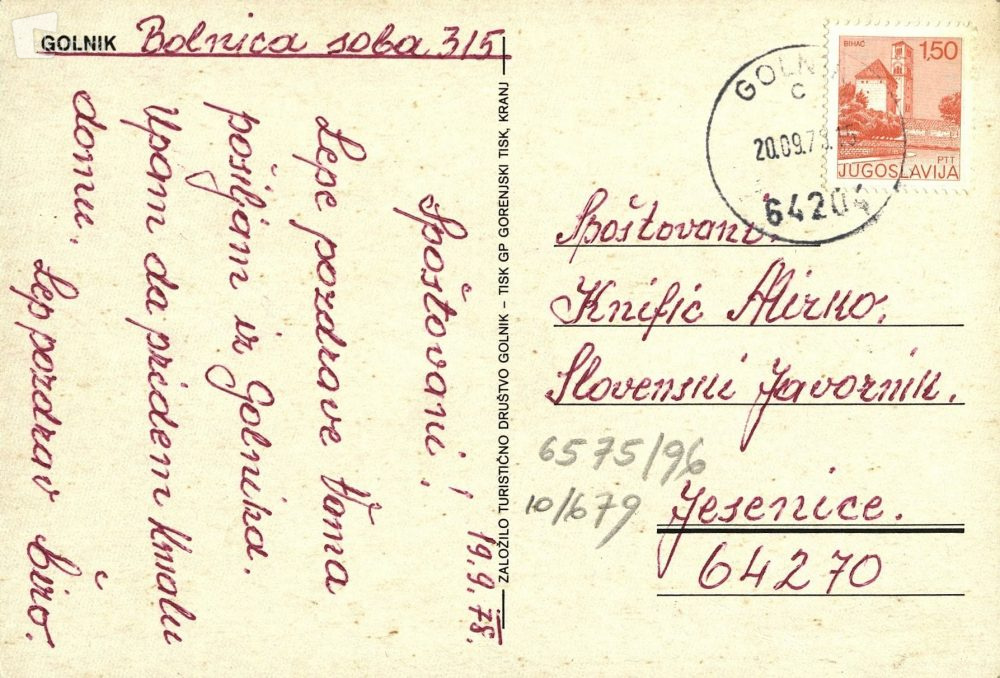 GOLNIK Bolnica soba 315
19.9.78.
Spoštovani!
Lepe pozdrave Vama
pošiljam iz Golnika.
Upam da pridem kmalu
domu.
Lep pozdrav Širo.
ZALOŽILO TURISTIČNO DRUŠTVO GOLNIK – TISK GP GORENJSKI TISK, KRANJ
BIHAĆ 1,50
PTT
JUGOSLAVIJA
C
20.09.78.15
64204
Spoštovani.
Knific Mirko.
Slovenski Javornik.
6575/96
10/679
Jesenice.
64270